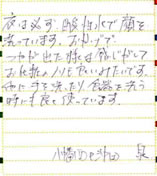 夜は必ず、酸性水で顔を
洗っています。おかげで
つやが出た様な感じがして
お化粧のノリもいいみたいです。
他に手を洗ったり、食器を洗う
時にも良く使っています。
八幡 泉